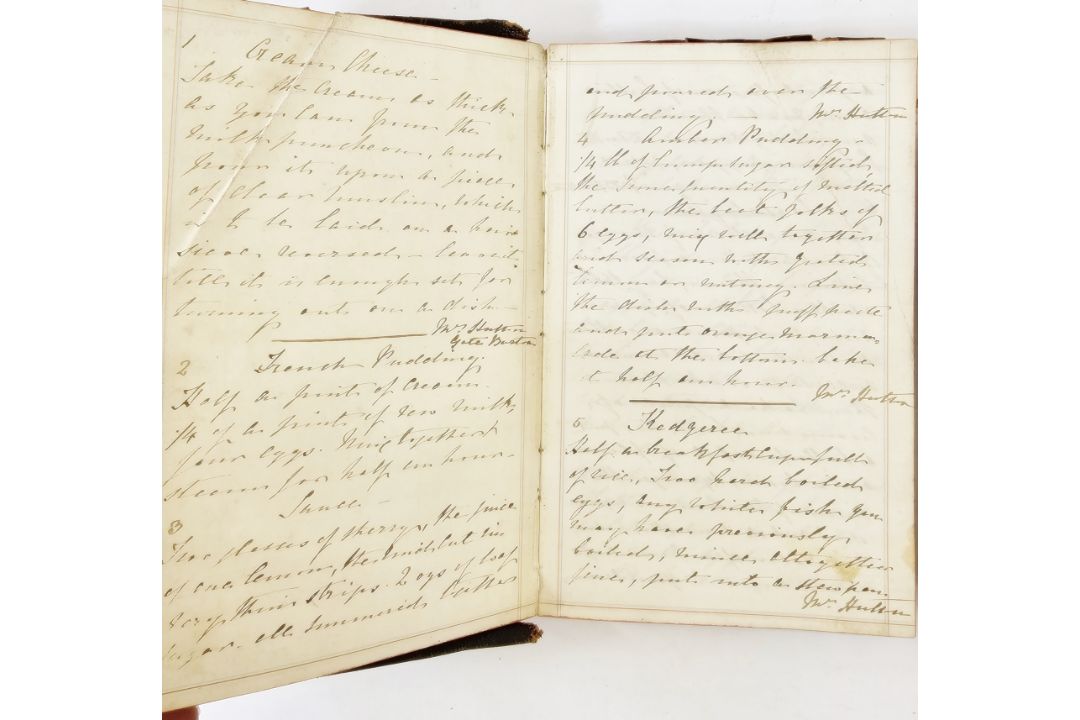 1 Cream Cheese -
Take the Cream as thick
as you can from the
milk puncheon, and
pour it upon a piece
of clear muslin, which
is to be laid on a hair
sieve reversed - leave it
till it is enough set for
turning out on a dish
Mrs Hutton
Gate Burton
2 French Pudding.
Half a pint of Cream
1/4 of a pint of new milk,
four eggs. Mix together &
steam for half an hour -
Sauce -
3
Two glasses of sherry, the juice
of one lemon, the rind cut in
very thin strips. 2 ozs of loaf
sugar - all simmered together
and poured over the
pudding. — Mrs Hutton
4 Amber Pudding -
1/4 lb of lump sugar sifted,
the same quantity of melted
butter, the beat yolks of
6 eggs, mix well together
and season with grated
lemon or nutmeg. Line
the dish with puff paste
and put orange marma-
lade at the bottom. bake
it half an hour.
Mrs Hutton
5 Kedgeree
Half a breakfast cup full
of rice, Two hard boiled
eggs, any white fish you
may have previously
boiled, mince altogether
fine, put into a stewpan
Mrs Hutton